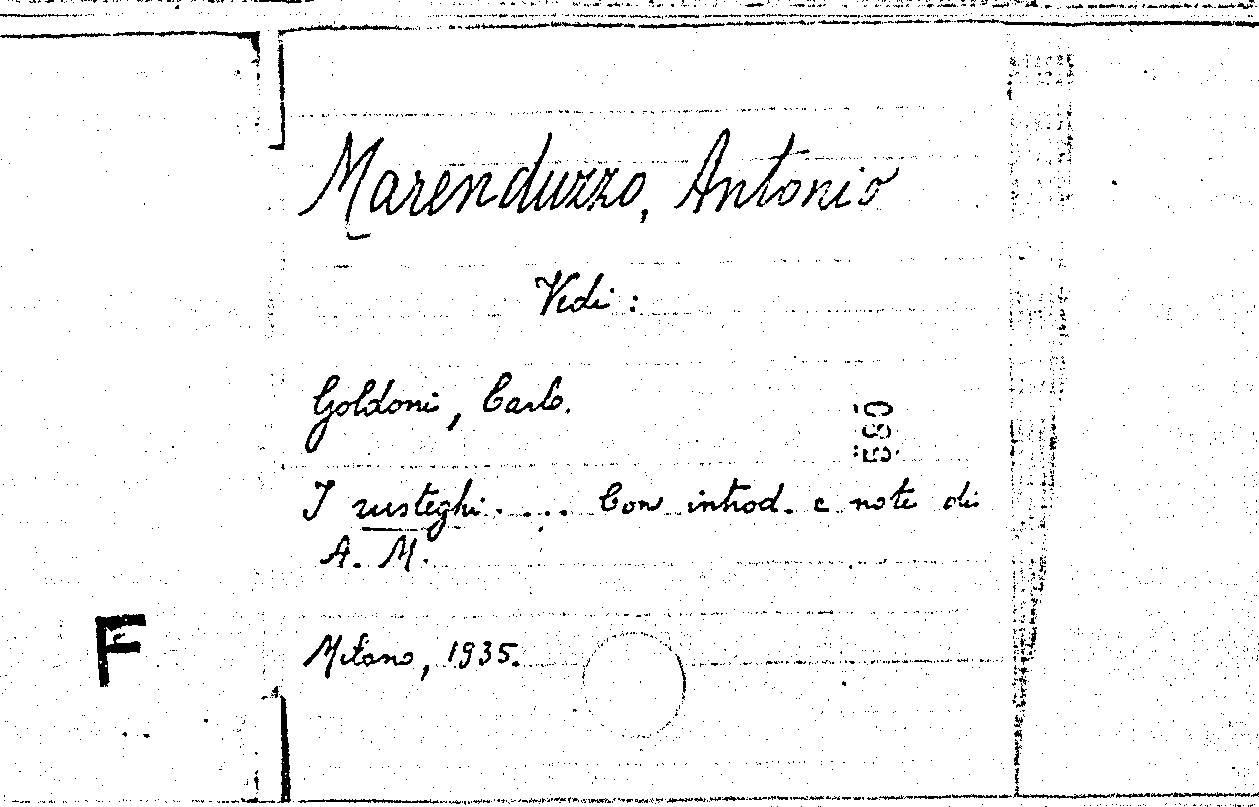 Marenduzzo, Antonio
Vedi :
Goldoni, Carlo.
I rusteghi. ... Con introd. e note di
A. M.
F
Milano, 1935.